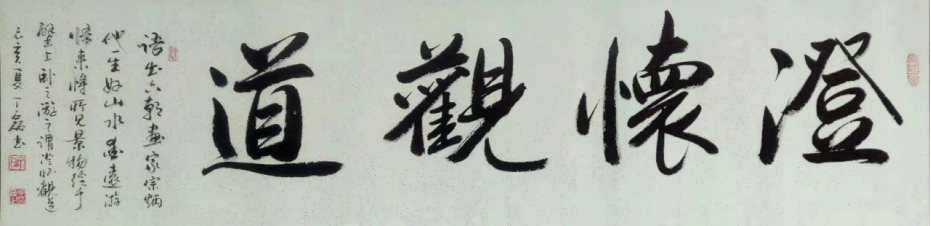 澄懷觀道
語出六朝畫家宗炳
代一生好山水 遠游
歸來將所見景物繪于
壁上卧之游之謂澄懷觀道
己亥夏丁磊書